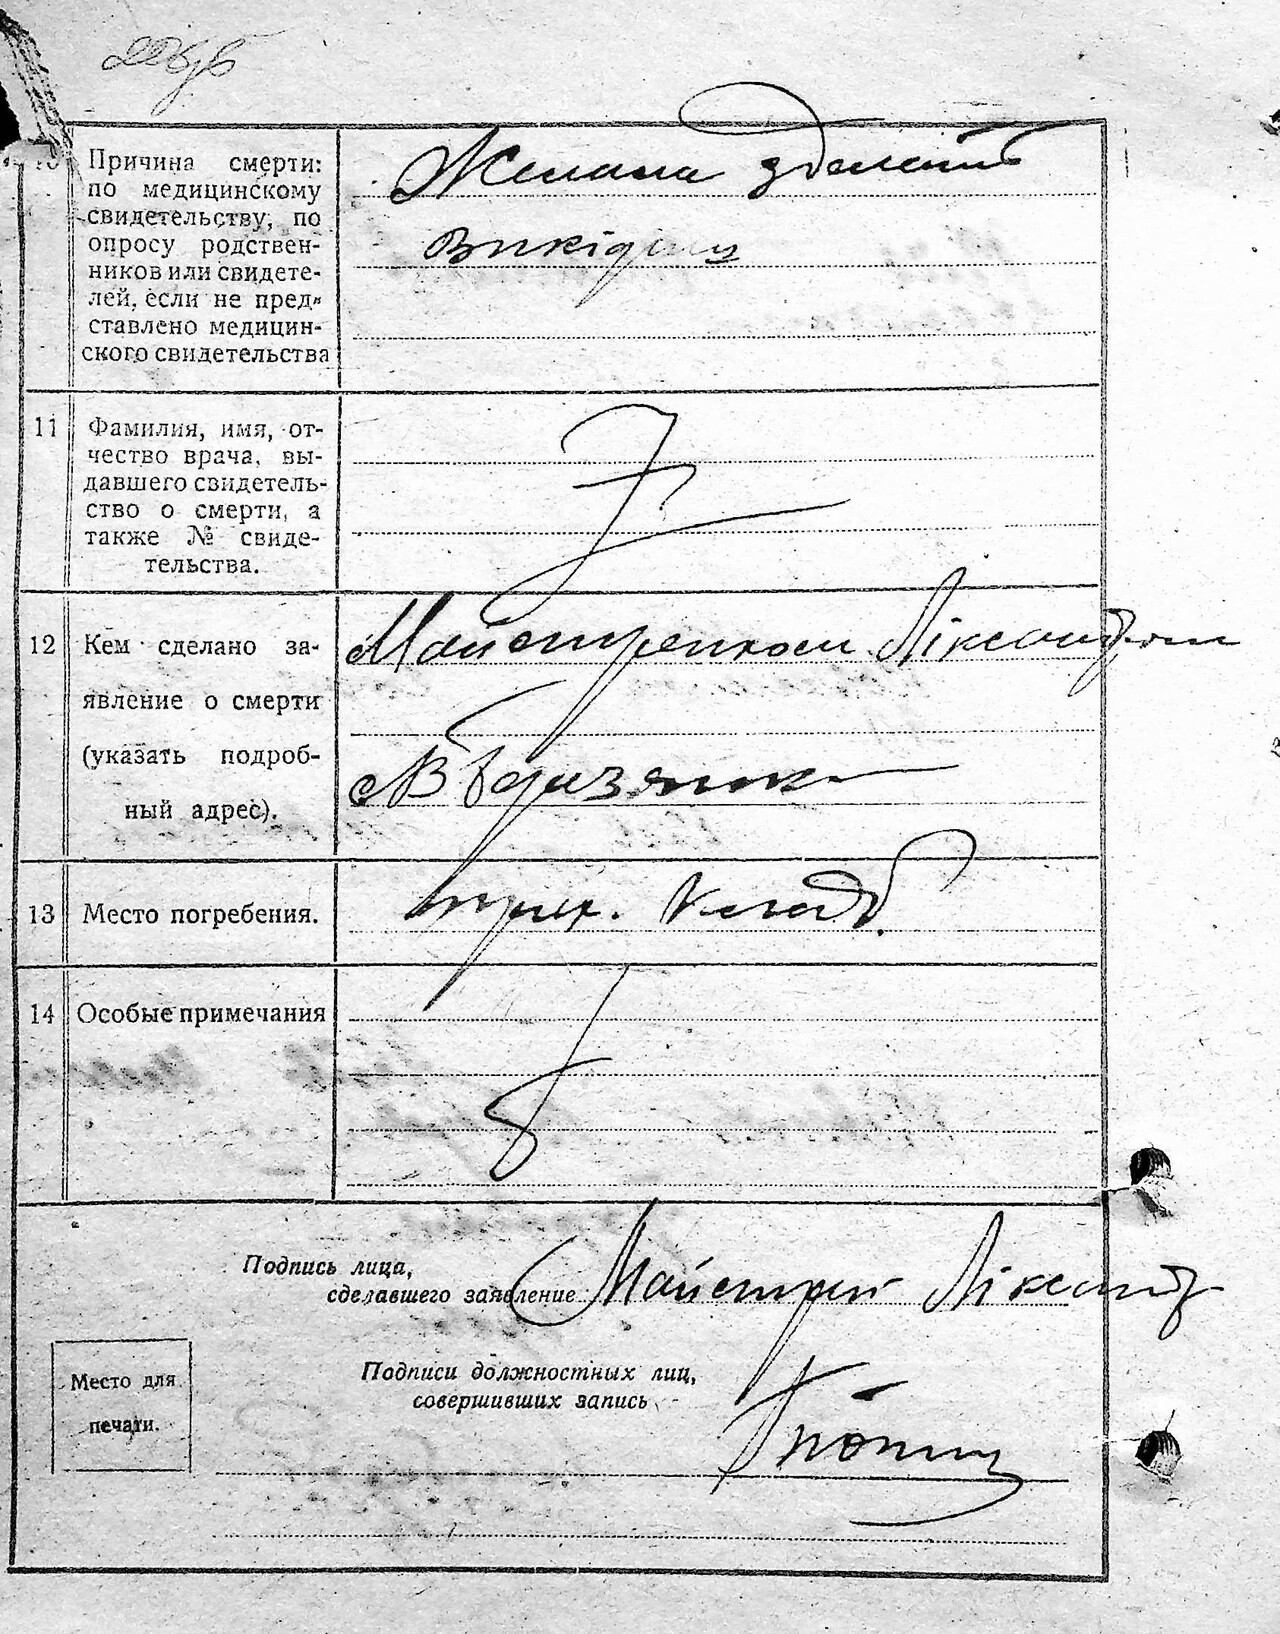 Причина смерти:
по медицинскому
свидетельству, по
опросу родствен-
ников или свидете-
лей, если не пред-
ставлено медицин-
ского свидетельства
Желала
викідиш
11
Фамилия, имя, от-
чество врача, вы-
давшего свидетель-
ство о смерти, а
также № свиде-
тельства.
12
Кем сделано за-
явление о смерти
(указать подроб-
ный адрес).
Майстренком Ліксандром
13
Место погребения.
прих. Кладб.
14
Особые примечания
Подпись лица,
сделавшего заявление Майстрен Ліксандр
Подписи должностных лиц,
совершивших запись
Место для
печати.